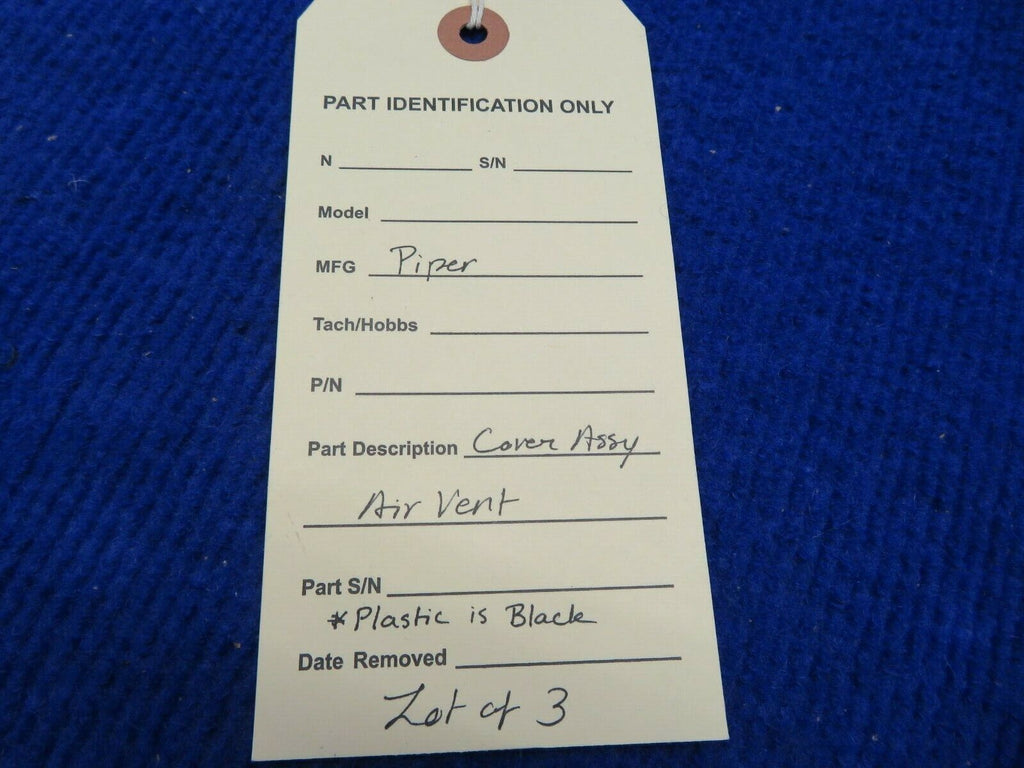 PART IDENTIFICATION ONLY
N S/N
Model
MFG Piper
Tach/Hobbs
P/N
Part Description Cover Assy
Air Vent
Part S/N
*Plastic is Black
Date Removed
Lot of 3